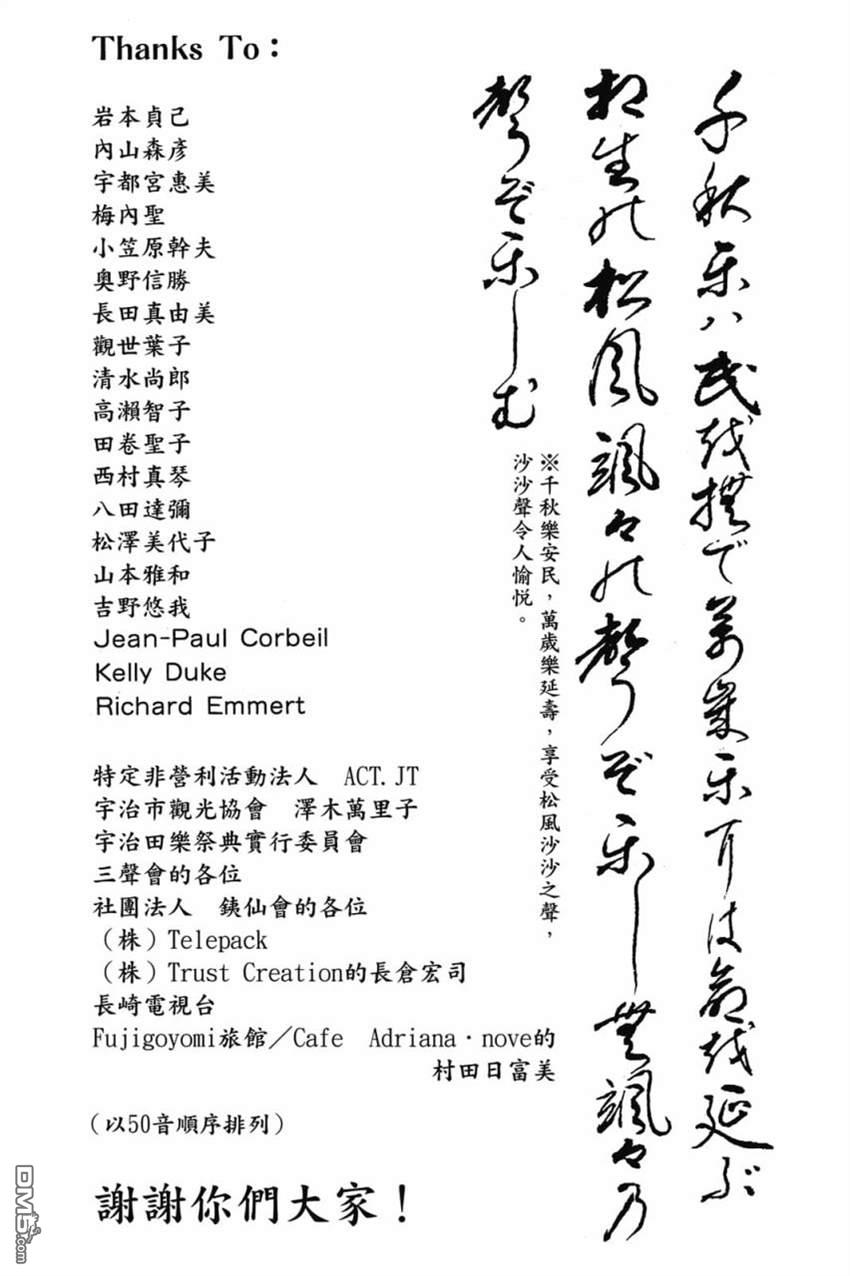 Thanks To：
岩本貞己
內山森彥
宇都宮惠美
梅內聖
小笠原幹夫
奧野信勝
長田真由美
觀世葉子
清水尚郎
高瀨智子
田卷聖子
西村真琴
八田達彌
松澤美代子
山本雅和
吉野悠我
Jean-Paul Corbeil
Kelly Duke
Richard Emmert
特定非營利活動法人　ACT.JT
宇治市觀光協會　澤木萬里子
宇治田樂祭典實行委員會
三聲會的各位
社團法人　銕仙會的各位
（株）Telepack
（株）Trust Creation的長倉宏司
長崎電視台
Fujigoyomi旅館／Cafe　Adriana・nove的
村田日富美
（以50音順序排列）
謝謝你們大家！
千秋乐ハ民越撫で萬歳乐耳は命越延ぶ
相生能松風颯々能聲ぞ乐し無颯々乃
聲ぞ乐しむ
※千秋樂安民，萬歲樂延壽，享受松風沙沙之聲，
沙沙聲令人愉悅。
DM5.com